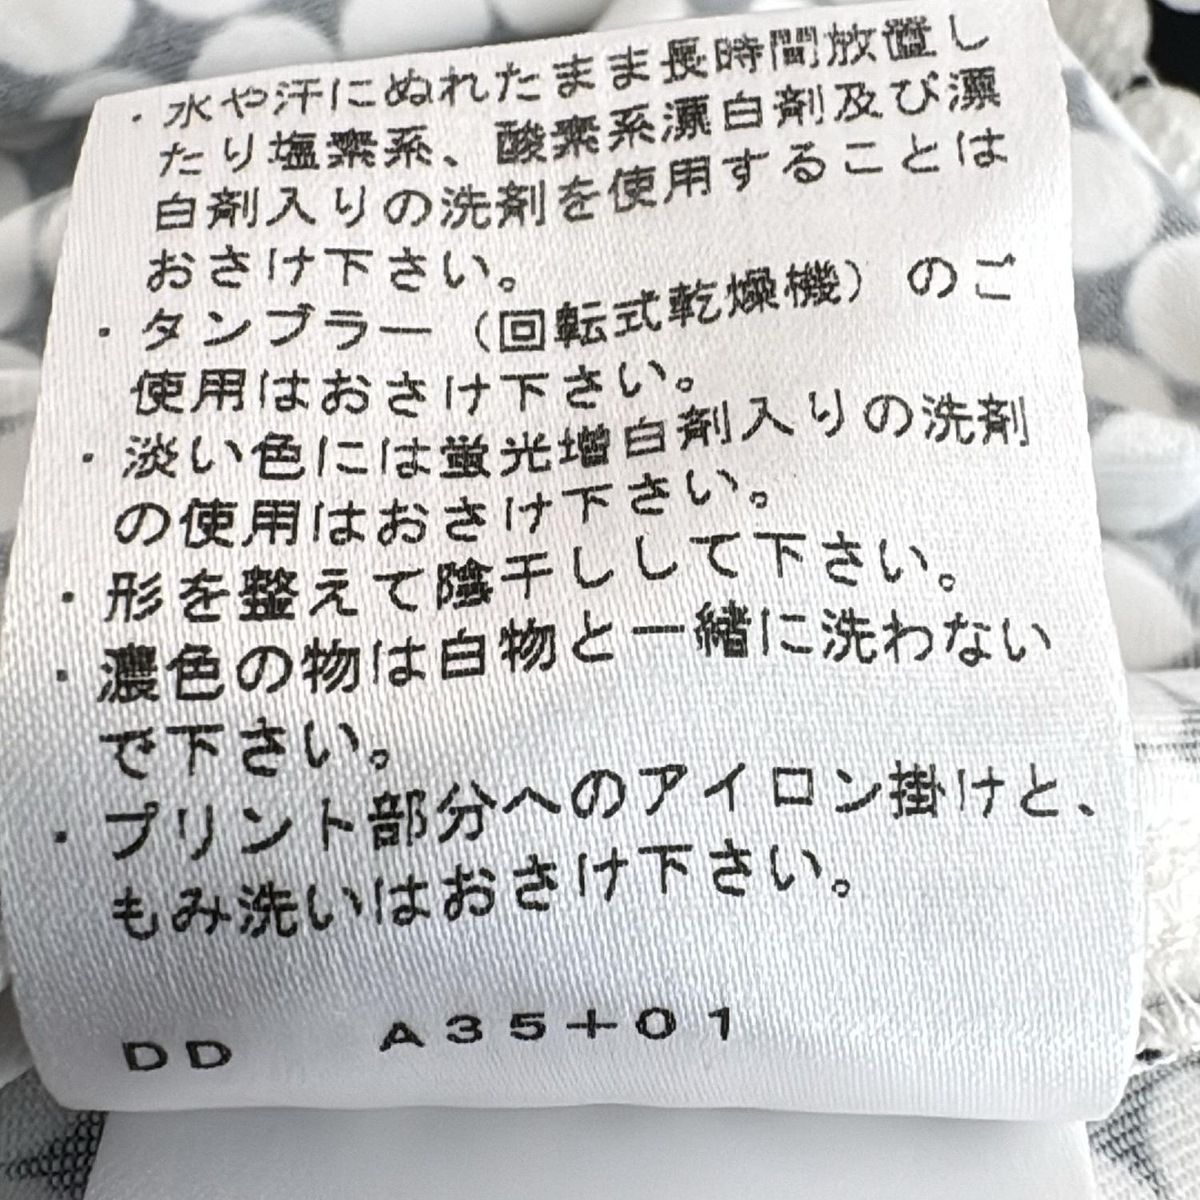 ・水や汗にぬれたまま長時間放置し
たり塩素系、酸素系漂白剤及び漂
白剤入りの洗剤を使用することは
おさけ下さい。
・タンブラー（回転式乾燥機）のご
使用はおさけ下さい。
・淡い色には蛍光増白剤入りの洗剤
の使用はおさけ下さい。
・形を整えて陰干しして下さい。
・濃色の物は白物と一緒に洗わない
で下さい。
・プリント部分へのアイロン掛けと、
もみ洗いはおさけ下さい。
DD A35+01